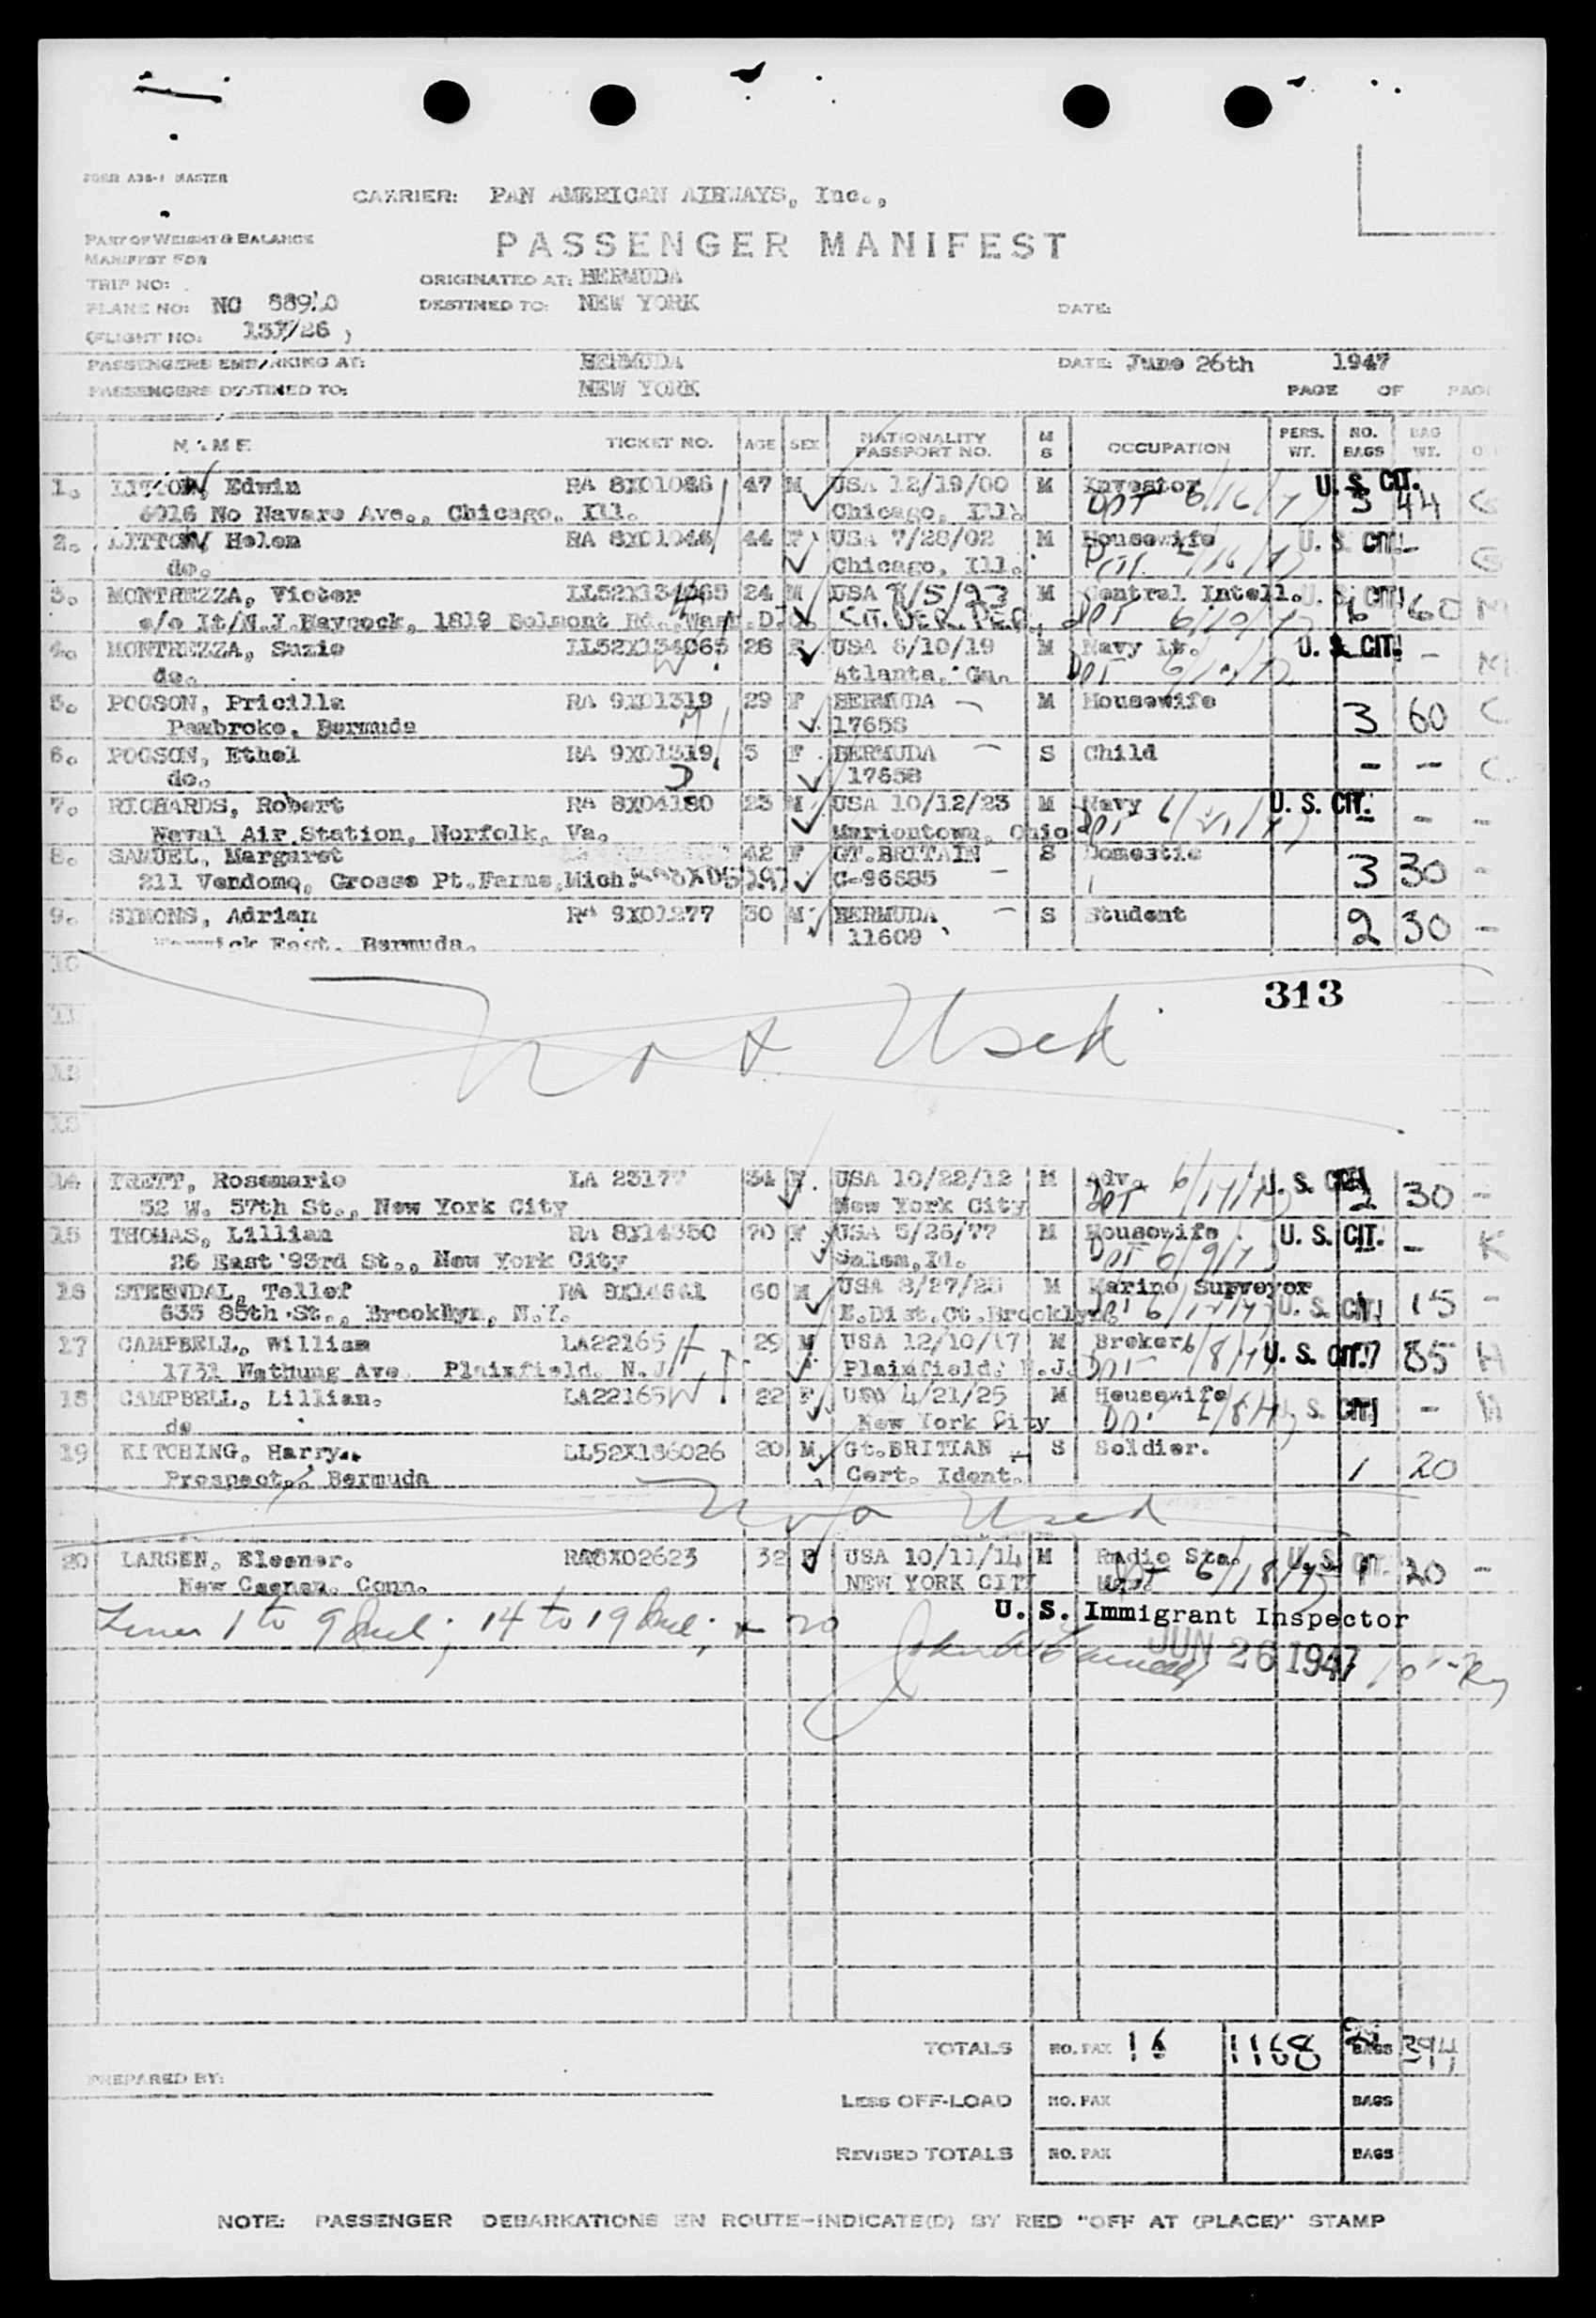 FORM A36-1 MASTER
CARRIER: PAN AMERICAN AIRWAYS, Inc.,
PART OF WEIGHT & BALANCE
MANIFEST FOR
PASSENGER MANIFEST
TRIP NO:
ORIGINATED AT: BERMUDA
PLANE NO: NC
DESTINED TO: NEW YORK
DATE:
(FLIGHT NO. 131/26 )
PASSENGERS EMBARKING AT: BERMUDA DATE: June 26th 1947
PASSENGERS DESTINED TO: NEW YORK PAGE OF PAGE
NAME TICKET NO. AGE SEX NATIONALITY PASSPORT NO. M S OCCUPATION PERS. WT. NO. BAGS BAG WT.
1. Edwin RA 8X01046 47 M USA 12/19/00 M Investor U. S. CIT. 3 44 G
6016 No Navare Ave., Chicago, Ill. Chicago, Ill. DPT 6/16/47
2. Helen RA 8X01046 44 F USA 7/28/02 M Housewife U. S. CIT. - G
do. Chicago, Ill. 6/16/47
3. MONTREZZA, Victor LL52X134065 24 M USA M Central Intell. U. S. CIT. 6 60 M
c/o Lt/N.J.Haycock, 1819 Belmont Rd., Wash. D.C. CIT. DER. PER. DPT
4. MONTREZZA, Suzie LL52X134065 28 F USA 6/10/19 M Navy Lt. U. S. CIT. - M
do. Atlanta, Ga. DPT
5. POGSON, Pricilla RA 9X01319 29 F BERMUDA - M Housewife 3 60 C
Pembroke, Bermuda 1765S
6. POGSON, Ethel RA 9X01319 5 F BERMUDA - S Child - - C
do. 1765S
7. RICHARDS, Robert RA 8X04180 23 M USA 10/12/23 M Navy U. S. CIT. - - -
Naval Air Station, Norfolk, Va. Mariontown, Ohio DPT 6/21/47
8. SAMUEL, Margaret 42 F GT.BRITAIN S Domestic 3 30 -
211 Vendome, Grosse Pt.Farms, Mich. C-96685 -
9. SIMONS, Adrian RA 9X01277 30 M BERMUDA - S Student 2 30 -
Warwick East, Bermuda. 11609
10
313
11
Not Used
12
13
14 TRETT, Rosemarie LA 23177 34 F USA 10/22/12 M Adv. U. S. CIT. 2 30 -
52 W. 57th St., New York City New York City DPT 6/17/47
15 THOMAS, Lillian RA 8X14350 70 F USA 5/26/77 M Housewife U. S. CIT. - - K
26 East 93rd St., New York City Salem, DPT 6/9/47
16 STEENDAL, Tellef RA 60 M USA 8/27/25 M Marine Surveyor
635 85th St., Brooklyn, N.Y. E.Dist.Ct.Brooklyn U. S. CIT. 1 15 -
17 CAMPBELL, William LA22165 H 29 M USA 12/10/17 M Broker 6/8/47 U. S. CIT. 7 85 H
1731 Wathung Ave. Plainfield. N.J. Plainfield. N.J. DPT
18 CAMPBELL, Lillian. LA22165 W 22 F USA 4/21/25 M Housewife U. S. CIT. - H
do New York City DPT 6/8/47
19 KITCHING, Harry.. LL52X136026 20 M Gt.BRITIAN - S Soldier. 1 20
Prospect, Bermuda Cert. Ident.
Not Used
20 LARSEN, Eleanor. RA8X02623 32 F USA 10/11/14 M Radio Sta. U. S. CIT. 1 20 -
New Caanan. Conn. NEW YORK CITY DPT 6/18/47
Lines 1 to 9 Incl; 14 to 19 Incl; + 20
U. S. Immigrant Inspector
JUN 26 1947
TOTALS NO. PAX 16 1168 BAGS 394
PREPARED BY:
LESS OFF-LOAD NO. PAX BAGS
REVISED TOTALS NO. PAX BAGS
NOTE: PASSENGER DEBARKATIONS EN ROUTE-INDICATE(D) BY RED "OFF AT (PLACE)" STAMP